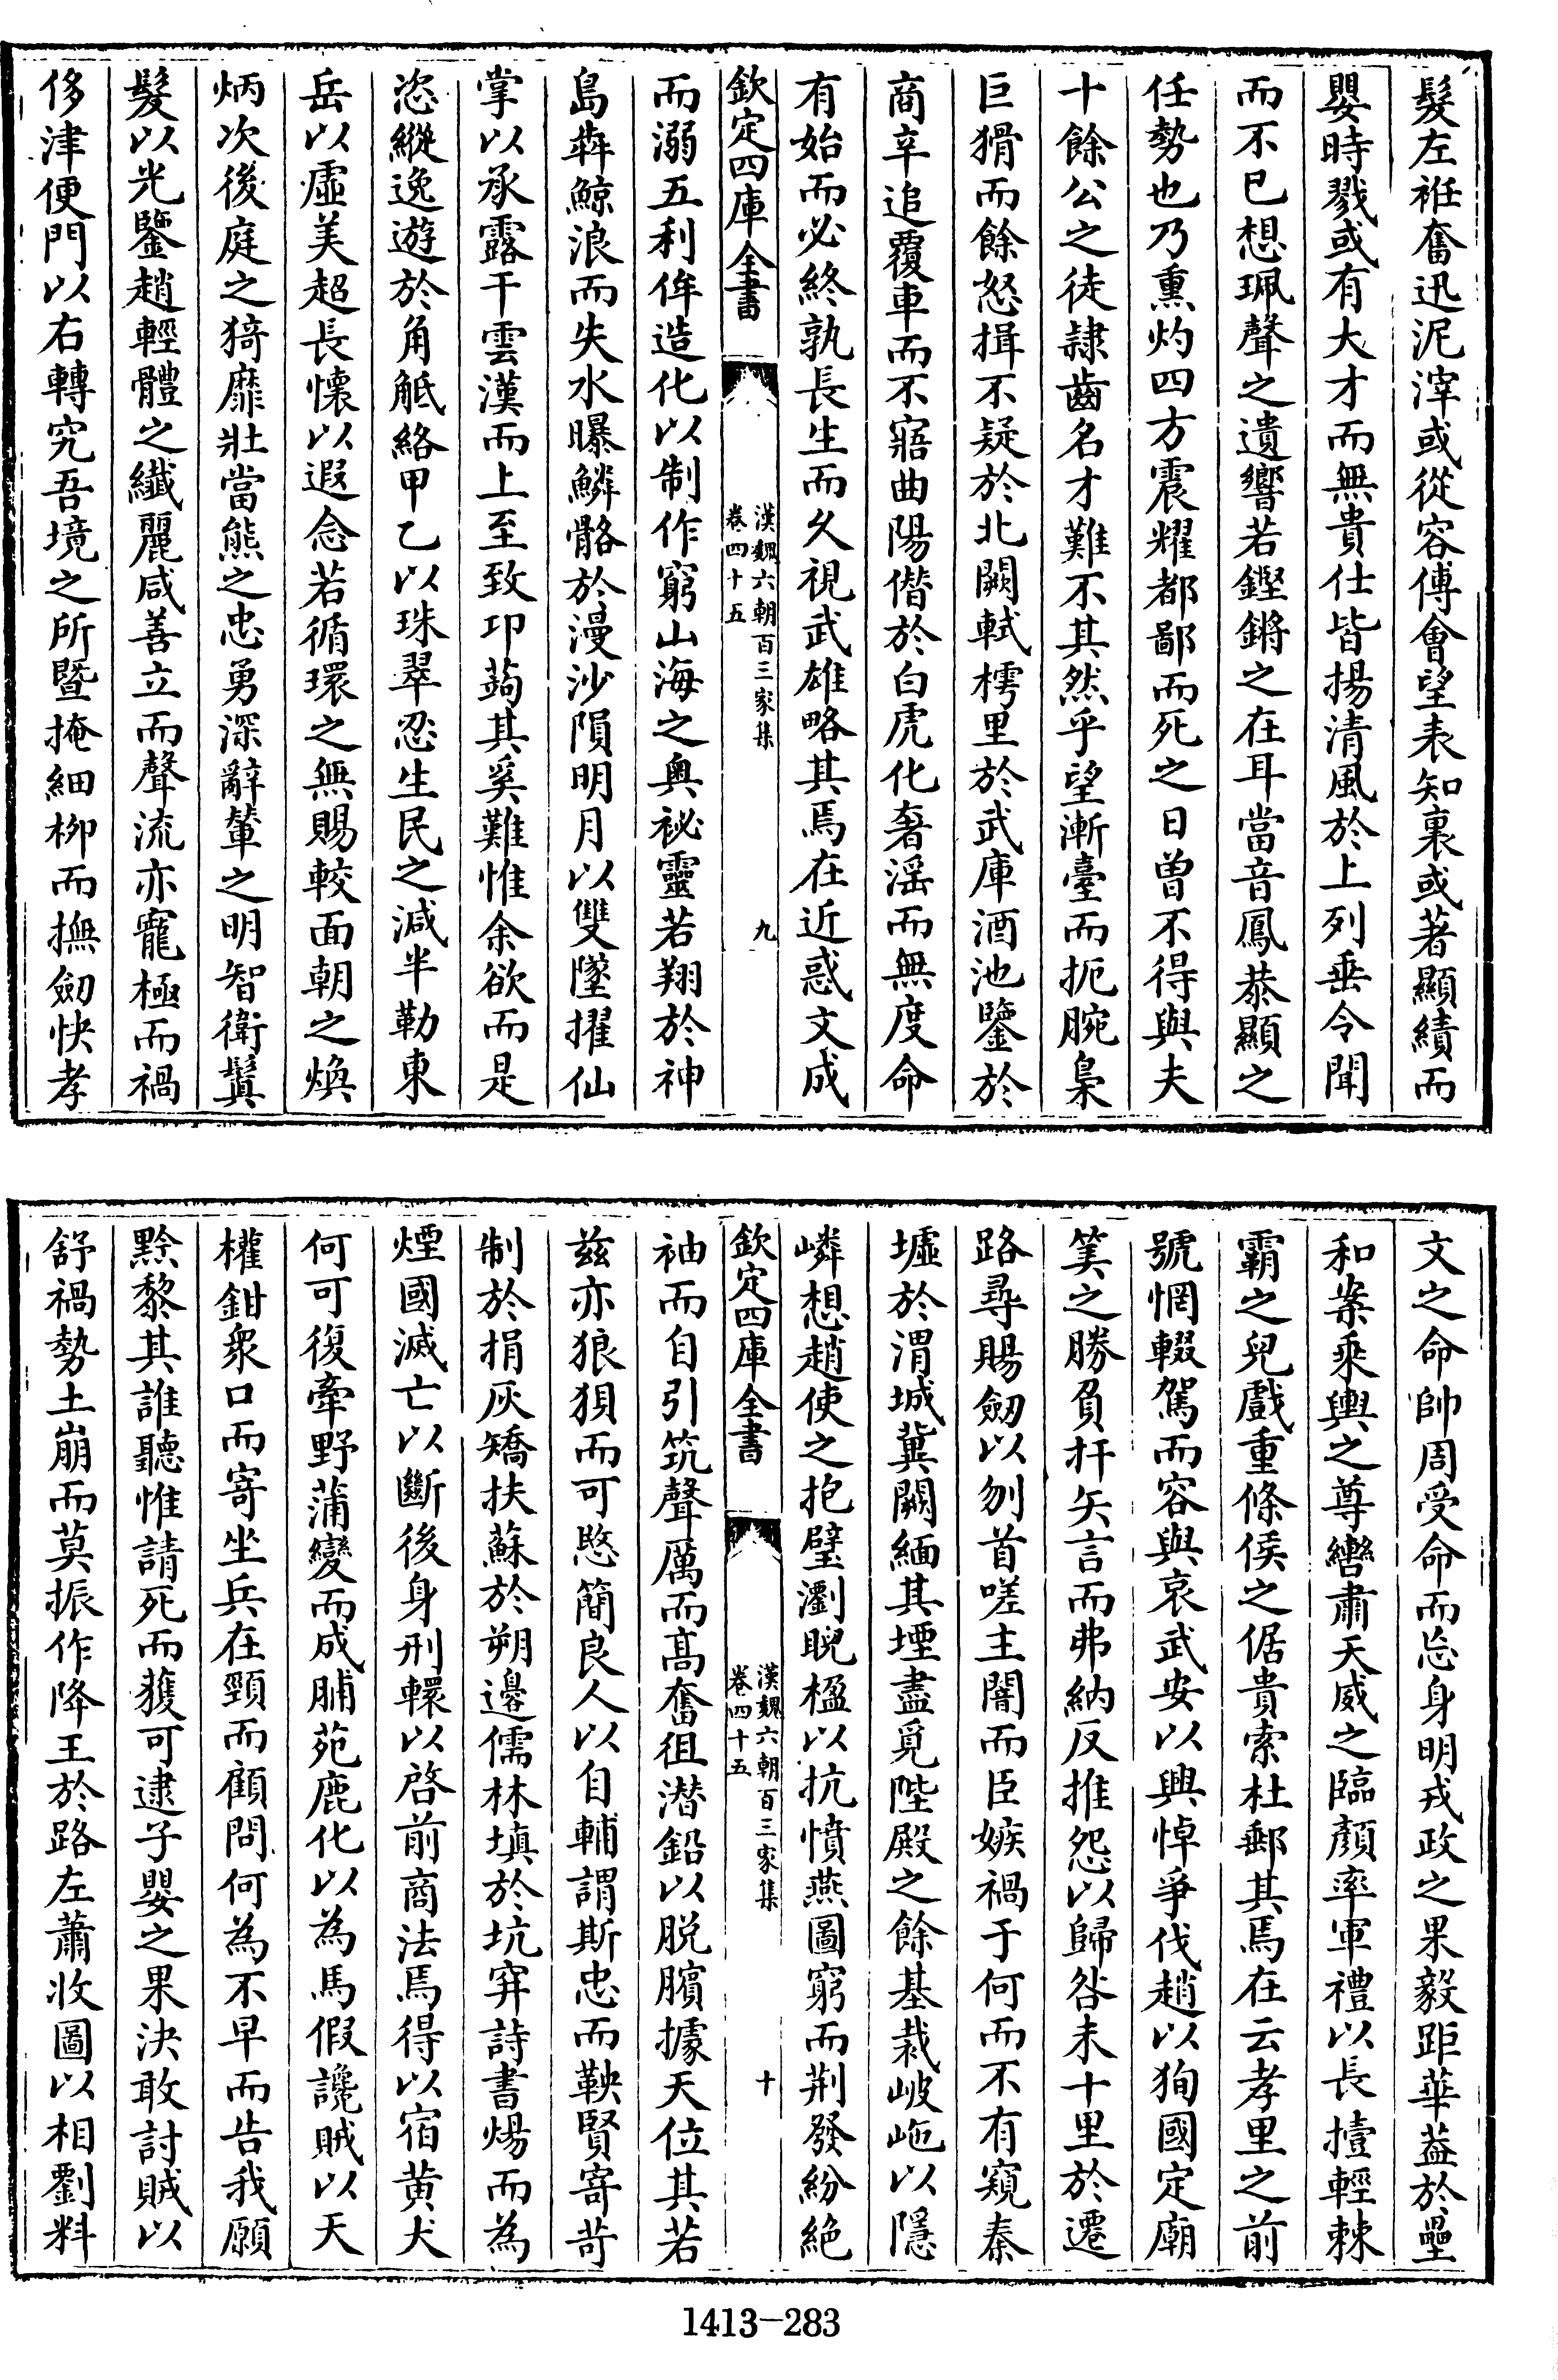 髮左袵奮迅泥滓或從容傅會望表知裏或著顯績而
嬰時戮或有大才而無貴仕皆揚清風於上列垂令聞
而不已想珮聲之遺響若鏗鏘之在耳當音鳳恭顯之
任勢也乃熏灼四方震耀都鄙而死之日曾不得與夫
十餘公之徒隷齒名才難不其然乎望漸臺而扼腕梟
巨猾而餘怒揖不疑於北闕軾樗里於武庫酒池鑒於
商辛追覆車而不寤曲陽僭於白虎化奢淫而無度命
有始而必終孰長生而久視武雄略其焉在近惑文成
欽定四庫全書
漢魏六朝百三家集
卷四十五
九
而溺五利侔造化以制作窮山海之奧祕靈若翔於神
島犇鯨浪而失水曝鱗骼於漫沙隕明月以雙墜擢仙
掌以承露干雲漢而上至致卭蒟其奚難惟余欲而是
恣縱逸遊於角觝絡甲乙以珠翠忍生民之減半勒東
岳以虛美超長懷以遐念若循環之無賜較面朝之煥
炳次後庭之猗靡壯當熊之忠勇深辭輦之明智衛鬒
髮以光鑒趙輕體之纖麗咸善立而聲流亦寵極而禍
侈津便門以右轉究吾境之所暨掩細柳而撫劒快孝
文之命帥周受命而忘身明戎政之果毅距華葢於壘
和案乘輿之尊轡肅天威之臨顏率軍禮以長撎輕棘
霸之兒戲重條侯之倨貴索杜郵其焉在云孝里之前
號惘輟駕而容與哀武安以興悼爭伐趙以狥國定廟
筭之勝負扞矢言而弗納反推怨以歸咎未十里於遷
路尋賜劒以刎首嗟主闇而臣嫉禍于何而不有窺秦
墟於渭城冀闕緬其堙盡覓陛殿之餘基裁岥岮以隱
嶙想趙使之抱璧瀏睨楹以抗憤燕圖窮而荆發紛絶
欽定四庫全書
漢魏六朝百三家集
卷四十五
十
袖而自引筑聲厲而高奮徂潛鉛以脱臏據天位其若
兹亦狼狽而可愍簡良人以自輔謂斯忠而鞅賢寄苛
制於捐灰矯扶蘇於朔邊儒林填於坑穽詩書煬而為
煙國滅亡以斷後身刑轘以啓前商法焉得以宿黄犬
何可復牽野蒲變而成脯苑鹿化以為馬假讒賊以天
權鉗衆口而寄坐兵在頸而顧問何為不早而告我願
黔黎其誰聽惟請死而獲可逮子嬰之果決敢討賊以
舒禍勢土崩而莫振作降王於路左蕭收圖以相劉料
1413-283